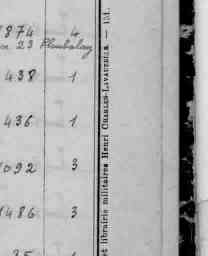 1874 4
23
438 1
436 1
1092 3
1486 3
35 1
et librairie militaires Henri CHARLES-LAVAUZELLE. — 151.